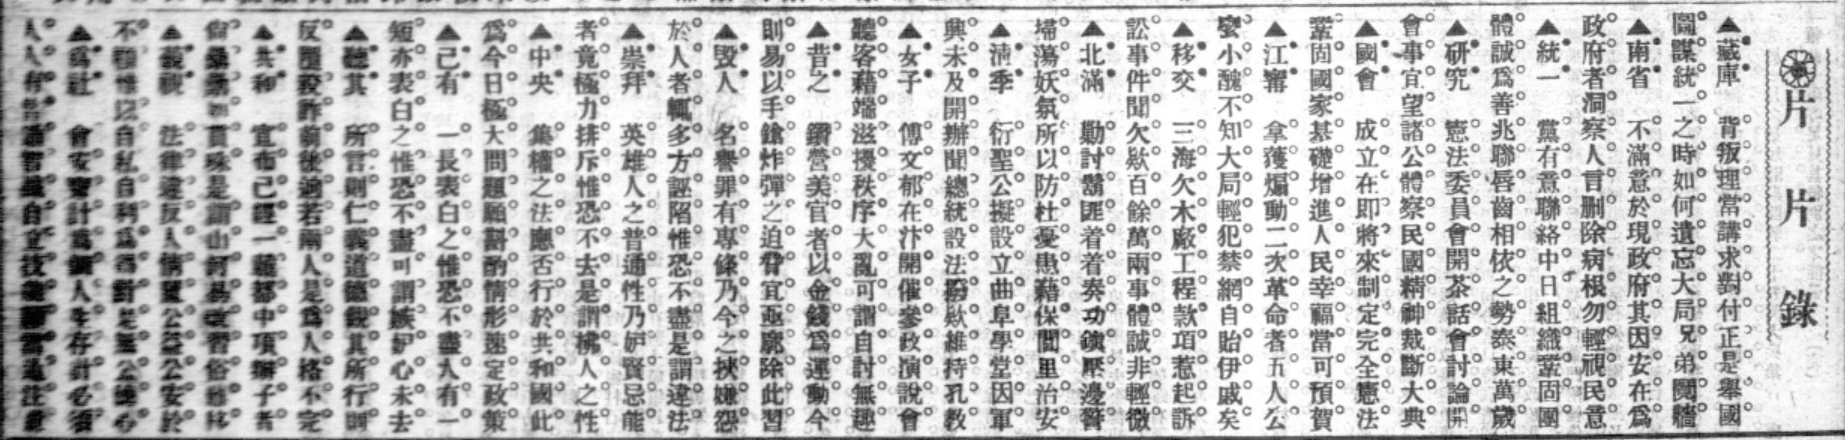 片片錄
▲藏庫　背叛理當講求對付正是舉國
圖謀統一之時如何遺忘大局兄弟鬩牆
▲南省　不滿意於現政府其因安在爲
政府者洞察人言删除病根勿輕視民意
▲統一　黨有意聯絡中日組織鞏固團
體誠爲善兆聯唇齒相依之勢泰東萬歲
▲研究　憲法委員會開茶話會討論開
會事宜望諸公體察民國精神裁斷大典
▲國會　成立在即將來制定完全憲法
鞏固國家基礎增進人民幸福當可預賀
▲江寗　拿獲煽動二次革命者五人公
孽小醜不知大局輕犯禁網自貽伊戚矣
▲移交　三海欠木廠工程款項惹起訴
訟事件聞欠欵百餘萬兩事體誠非輕微
▲北滿　勦討鬍匪着着奏功鎮壓邊警
埽蕩妖氛所以防杜憂患藉保閭里治安
▲淸季　衍聖公擬設立曲阜學堂因軍
興未及開辦聞總統設法撥欵維持孔敎
▲女子　傅文郁在汴開催參政演說會
聽客藉端滋擾秩序大亂可謂自討無趣
▲昔之　鑽營美官者以金錢爲運動今
則易以手鎗炸彈之迫脅宜亟廓除此習
▲毀人　名譽罪有專條乃今之挾嫌怨
於人者輒多方誣陷惟恐不盡是謂違法
▲崇拜　英雄人之普通性乃妒賢忌能
者竟極力排斥惟恐不去是謂拂人之性
▲中央　集權之法應否行於共和國此
爲今日極大問題願斟酌情形速定政策
▲己有　一長表白之惟恐不盡人有一
短亦表白之惟恐不盡可謂嫉妒心未去
▲聽其　所言則仁義道德觀其所行則
反覆詐前後逈若兩人是爲人格不完
▲共和　宣布已經一載都中項辮子者
是謂山河易改習俗難移
法律違反人情公益公安於
不顧惟以自私自利爲得計是無公德心
▲爲社　會安寗計爲個人生存計必須
人人有普通智識自立技